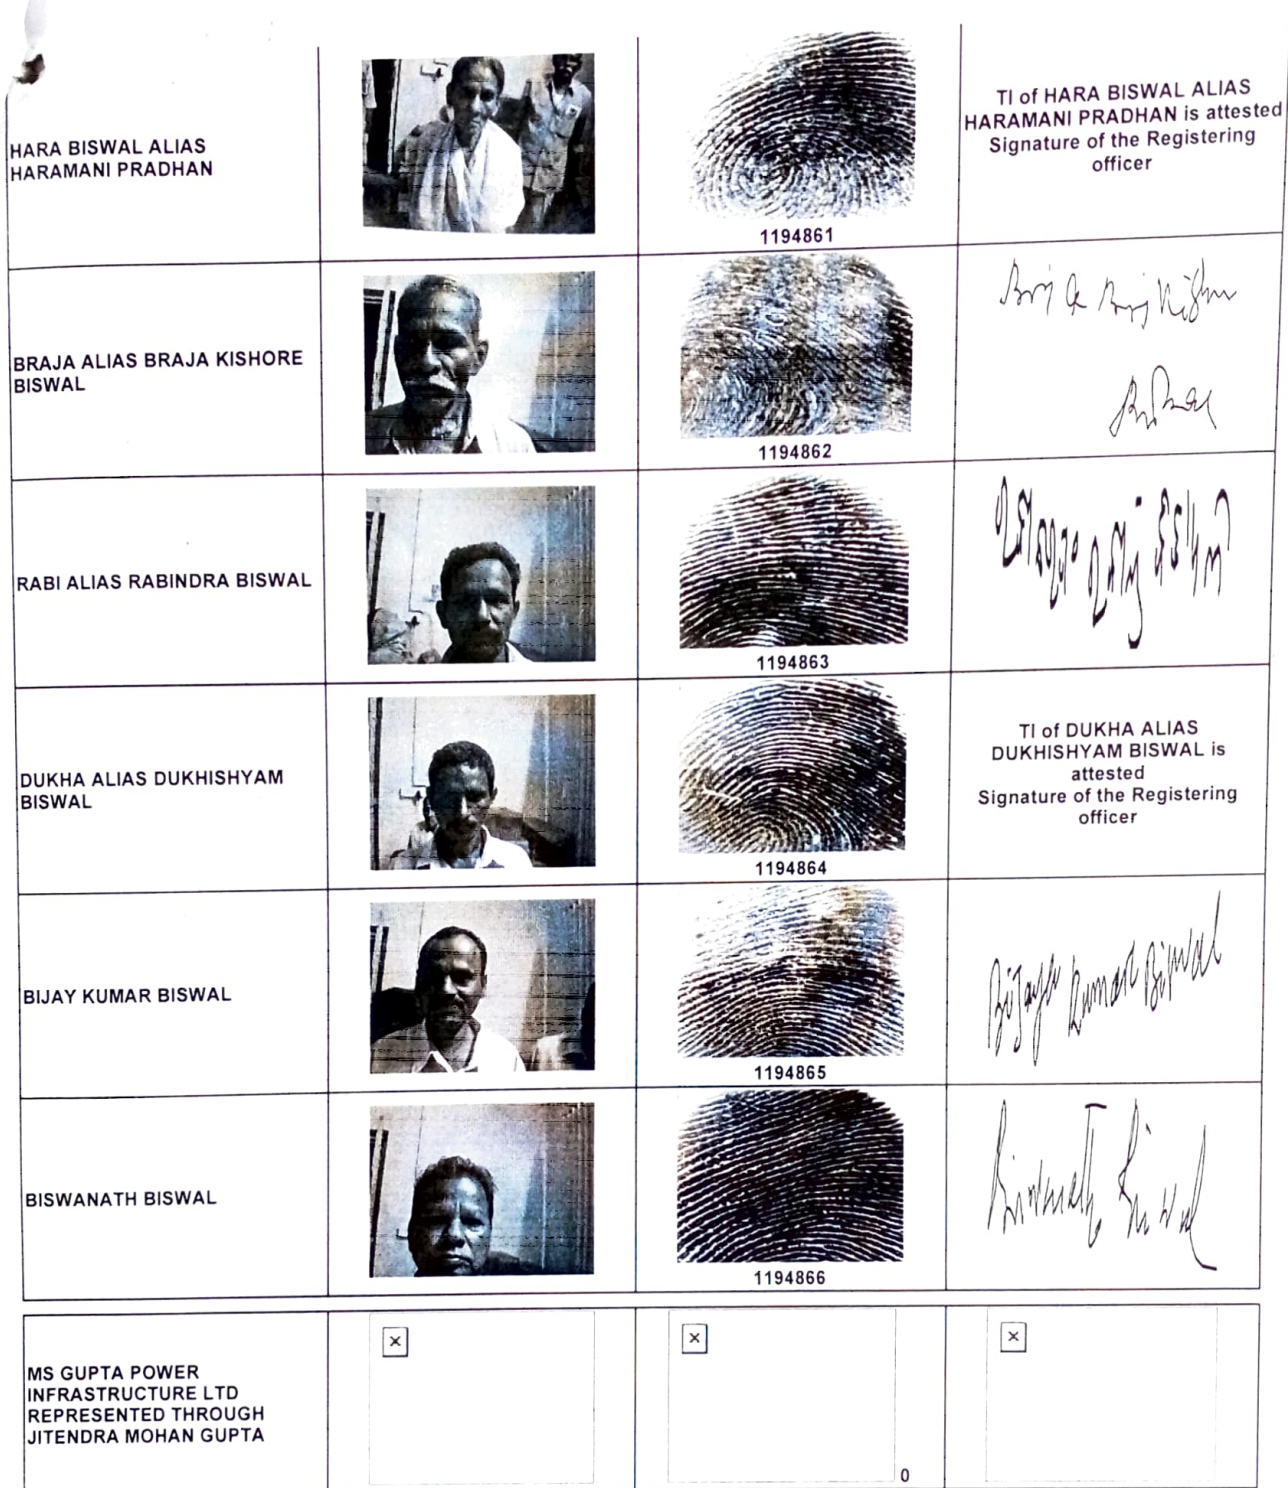 HARA BISWAL ALIAS
HARAMANI PRADHAN
1194861
TI of HARA BISWAL ALIAS
HARAMANI PRADHAN is attested
Signature of the Registering
officer
BRAJA ALIAS BRAJA KISHORE
BISWAL
1194862
RABI ALIAS RABINDRA BISWAL
1194863
DUKHA ALIAS DUKHISHYAM
BISWAL
1194864
TI of DUKHA ALIAS
DUKHISHYAM BISWAL is
attested
Signature of the Registering
officer
BIJAY KUMAR BISWAL
1194865
Bijaya Kumar Biswal
BISWANATH BISWAL
1194866
Biswanath Biswal
MS GUPTA POWER
INFRASTRUCTURE LTD
REPRESENTED THROUGH
JITENDRA MOHAN GUPTA
0